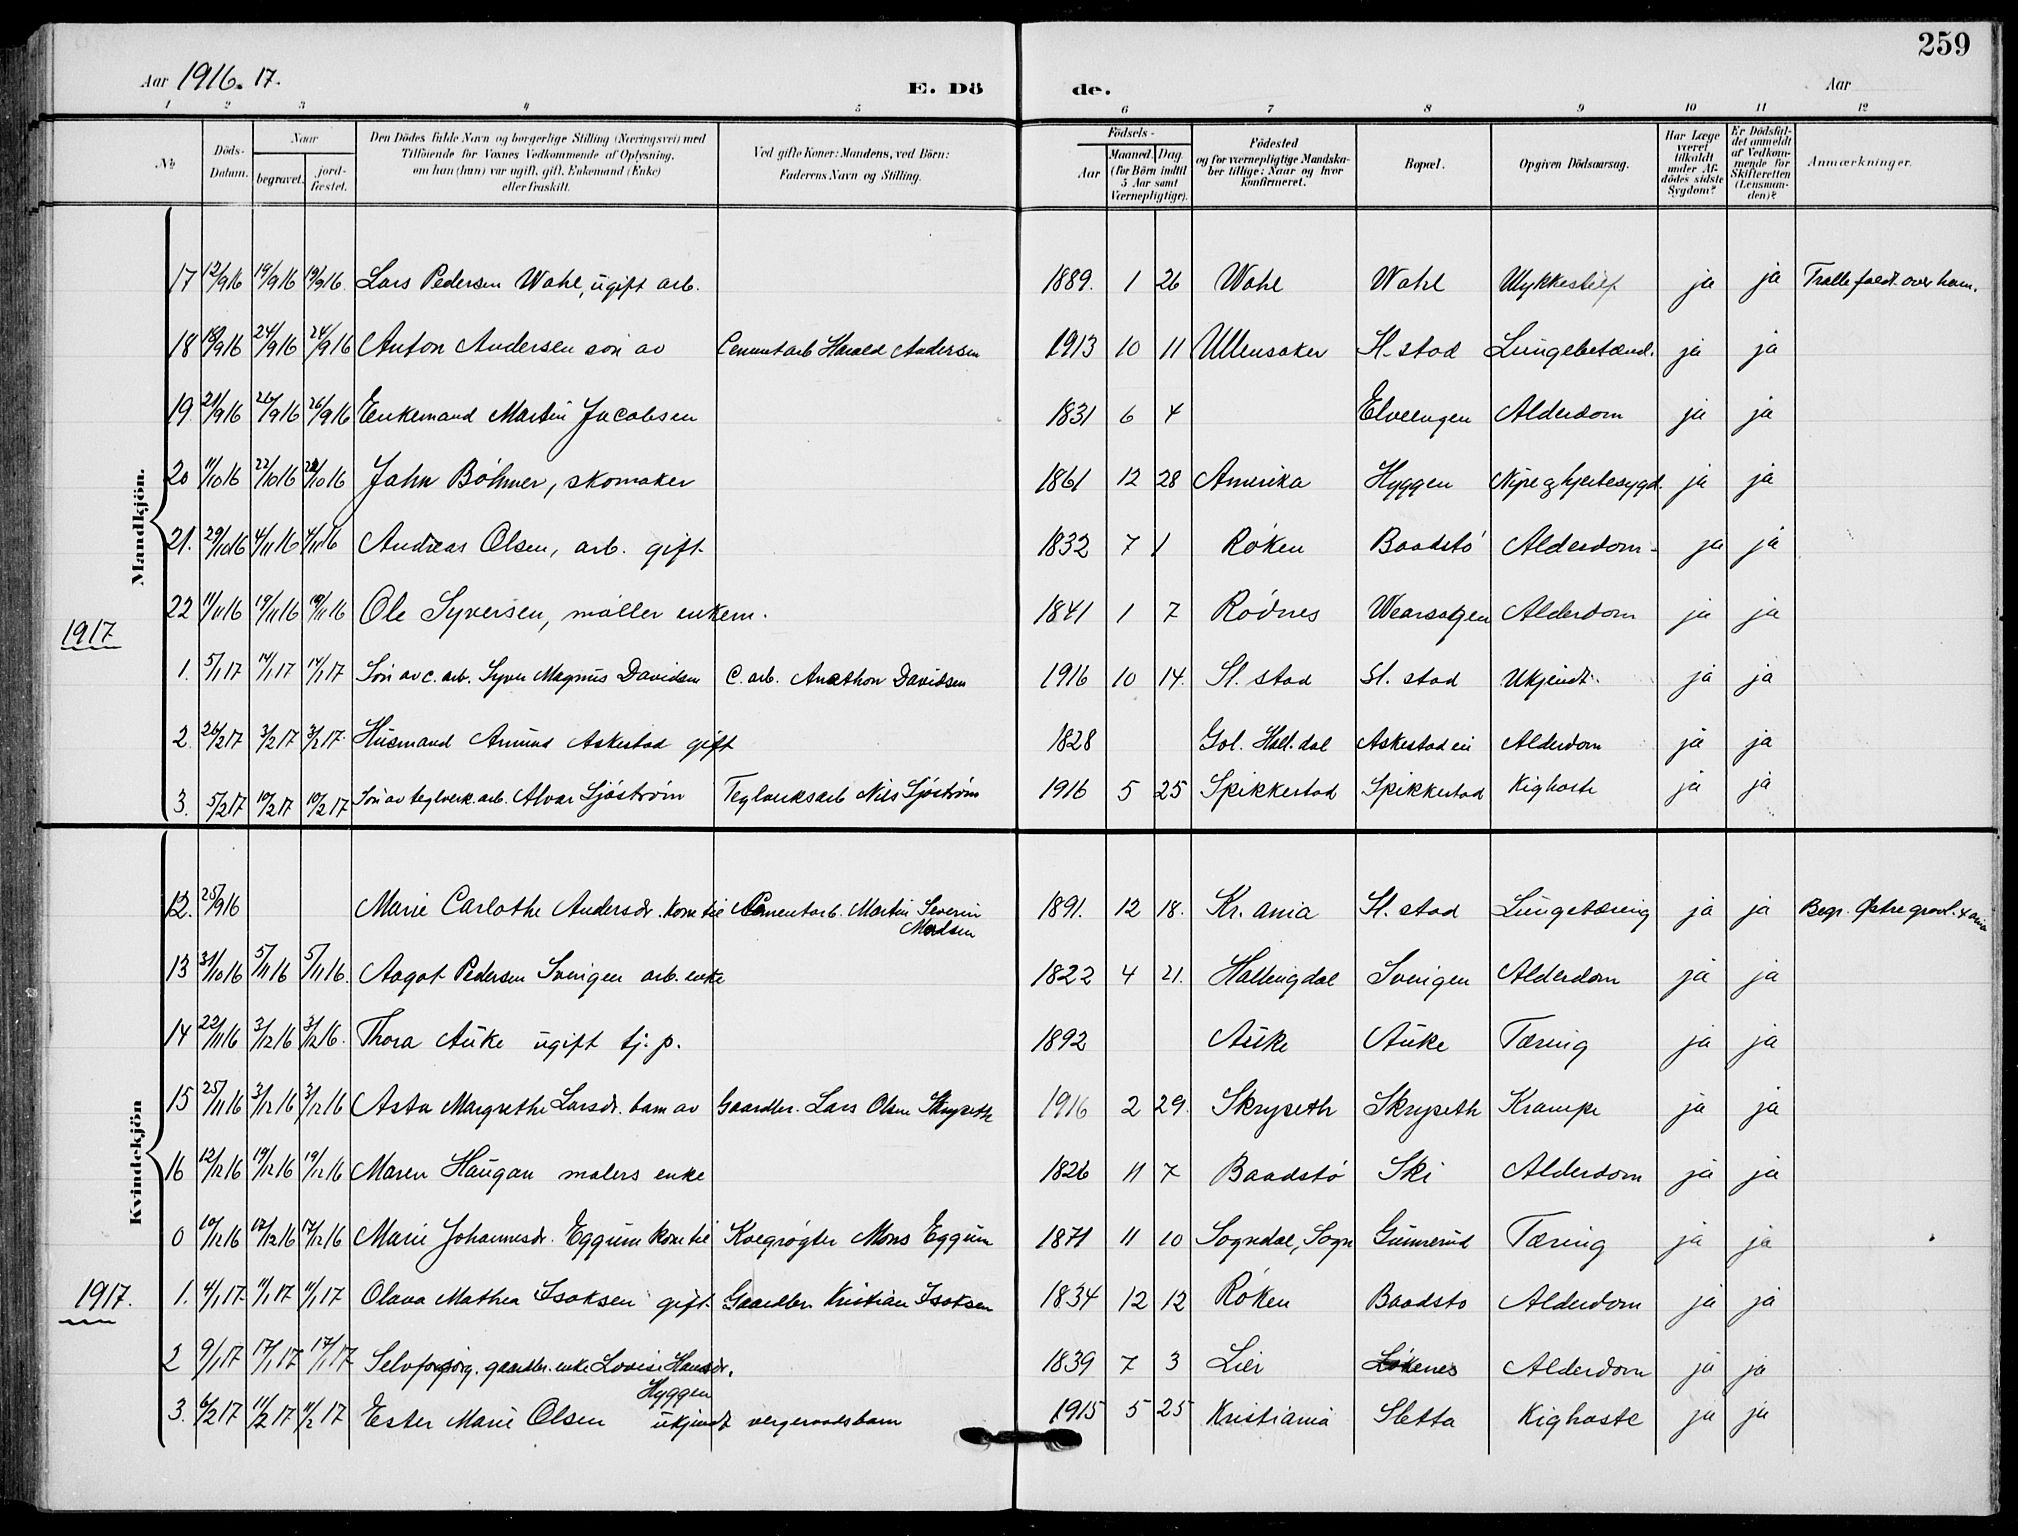 259
Aar 1916. 17.
E. Dö
de.
Aar
1 2 3 4 5 6 7 8 9 10 11 12
№
Döds-Datum.
Naar
begravet.
jord-fæstet.
Den Dödes fulde Navn og borgerlige Stilling (Næringsvei) med
Tilföiende for Voxnes Vedkommende af Oplysning,
om han (hun) var ugift, gift, Enkemand (Enke)
eller fraskilt.
Ved gifte Koner: Mandens, ved Börn:
Faderens Navn og Stilling.
Födsels-
Aar
Maaned. Dag.
(for Börn indtil
5 Aar samt
Værnepligtige).
Födested
og for værnepligtige Mandska-
ber tillige: Naar og hvor
Konfirmeret.
Bopæl.
Opgiven Dödsaarsag.
Har Læge
været
tilkaldt
under Af-
dödes sidste
Sygdom?
Er Dödsfal-
det anmeldt
af Vedkom-
mende for
Skifteretten
(Lensman-
den)?
Anmærkninger.
Mandkjön.
17 12/9 16 19/9 16 19/9 16. Lars Pedersen Wahl, ugift arb. 1889. 1 26 Wahl Wahl Ulykkestilf ja ja Tralle faldt over ham.
18 18/9 16 24/9 16 24/9 16 Anton Andersen søn av Cementarb Harald Andersen 1913 10 11 Ullensaker Sl. stad Lungebetænd. ja ja
19 21/9 16 26/9 16 26/9 16 Enkemand Martin Jacobsen 1831 6 4 Elveengen Alderdom ja ja
20 11/10 16 22/10 16 22/10 16 John Böhmer, skomaker 1861 12 28 Amerika Hyggen Nyre og hjertesygd. ja ja
21. 29/10 16 4/11 16 4/11 16 Andreas Olsen, arb. gift 1832 7 1 Røken Baadstø Alderdom ja ja
22 11/11 16 19/11 16 19/11 16 Ole Syversen, møller enkem. 1841 1 7 Rødnes Alderdom ja ja
1917
1. 5/1 17 14/1 17 14/1 17 Søn av c. arb. Syver Magnus Davidsen C. arb. Anathon Davidsen 1916 10 14. Sl. stad Sl. stad Ukjendt. ja ja
2 26/2 17 3/2 17 3/2 17 Husmand Amund Askestad gift 1828 Gol. Hall. dal Askestadeie Alderdom ja ja
3. 5/2 17 10/2 17 10/2 17 Søn av teglverk. arb. Alvar Sjøstrøm Teglverksarb Nils Sjøstrøm 1916 5 25 Spikkestad Spikkestad Kighoste ja ja
Kvindekjön
12. 25/9 16 Marie Carlothe Andersdr. kone til Cementarb. Martin Severin
Madsen 1891. 12 18. Kr. ania Sl. stad Lungetæring ja ja Begr. Østre gravl. Xania
13 31/10 16 5/11 16 5/11 16. Aagot Pedersen Svingen arb. enke 1822 4 21. Hallingdal Svingen Alderdom ja ja
14 22/11 16 3/12 16 3/12 16. Thora Auke ugift tj. p. 1892 Auke Auke Tæring ja ja
15 25/11 16 3/12 16 3/12 16 Asta Margrethe Larsdr. barn av Gaardbr. Lars Olsen Skryseth 1916 2 29. Skryseth Skryseth Krampe ja ja
16 12/12 16 19/12 16 19/12 16 Maren Haugan malers enke 1826 11 7 Baadstø Ski Alderdom ja ja
0 10/12 16 17/12 16 17/12 16 Marie Johannesdr. Eggum kone til Kvegrøgter Mons Eggum 1871 11 10 Sogndal, Sogn Gunnerud Tæring ja ja
1917.
1. 4/1 17. 11/1 17 11/1 17 Olava Mathea Isaksen gift. Gaardbr. Kristian Isaksen 1834 12 12 Røken Baadstø Alderdom ja ja
2 9/1 17 17/1 17 17/1 17 Selvforsørg. gaardbr. enke Lovise Hansdr.
Hyggen 1839 7 3 Lier Løkenes Alderdom ja ja
3. 6/2 17 11/2 17 11/2 17 Ester Marie Olsen ukjendt vergeraadsbarn 1915 5 25 Kristiania Sletta Kighoste ja ja